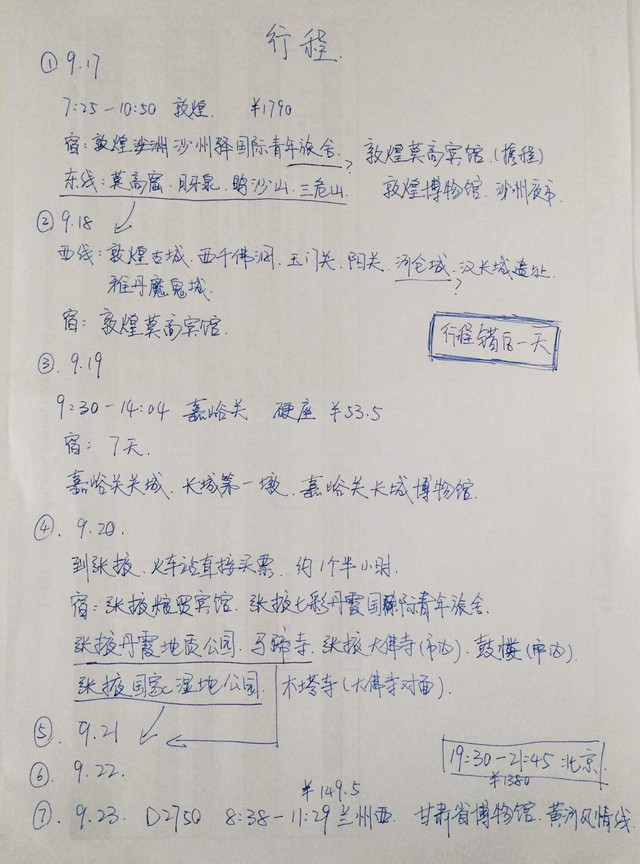 行程.
① 9.17
7:25-10:50 敦煌. ¥1790
宿: 敦煌沙洲沙州驿国际青年旅舍? 敦煌莫高宾馆.(携程)
东线: 莫高窟. 月牙泉. 鸣沙山. 三危山. 敦煌博物馆. 沙州夜市
② 9.18
西线: 敦煌古城. 西千佛洞. 玉门关. 阳关. 河仓城? 汉长城遗址.
雅丹魔鬼城.
宿: 敦煌莫高宾馆.
行程错后一天
③. 9.19
9:30-14:04 嘉峪关 硬座 ¥53.5
宿: 7天.
嘉峪关关城. 长城第一墩. 嘉峪关长城博物馆.
④. 9.20.
到张掖. 火车站直接买票. 约1个半小时.
宿: 张掖煊贸宾馆. 张掖七彩丹霞国际青年旅舍.
张掖丹霞地质公园. 马蹄寺. 张掖大佛寺(市内). 鼓楼(市内).
张掖国家湿地公园. 木塔寺(大佛寺对面).
⑤. 9.21
⑥. 9.22.
19:30-21:45 北京.
¥1380
¥149.5
⑦. 9.23. D2750 8:38-11:29 兰州西. 甘肃省博物馆. 黄河风情线.